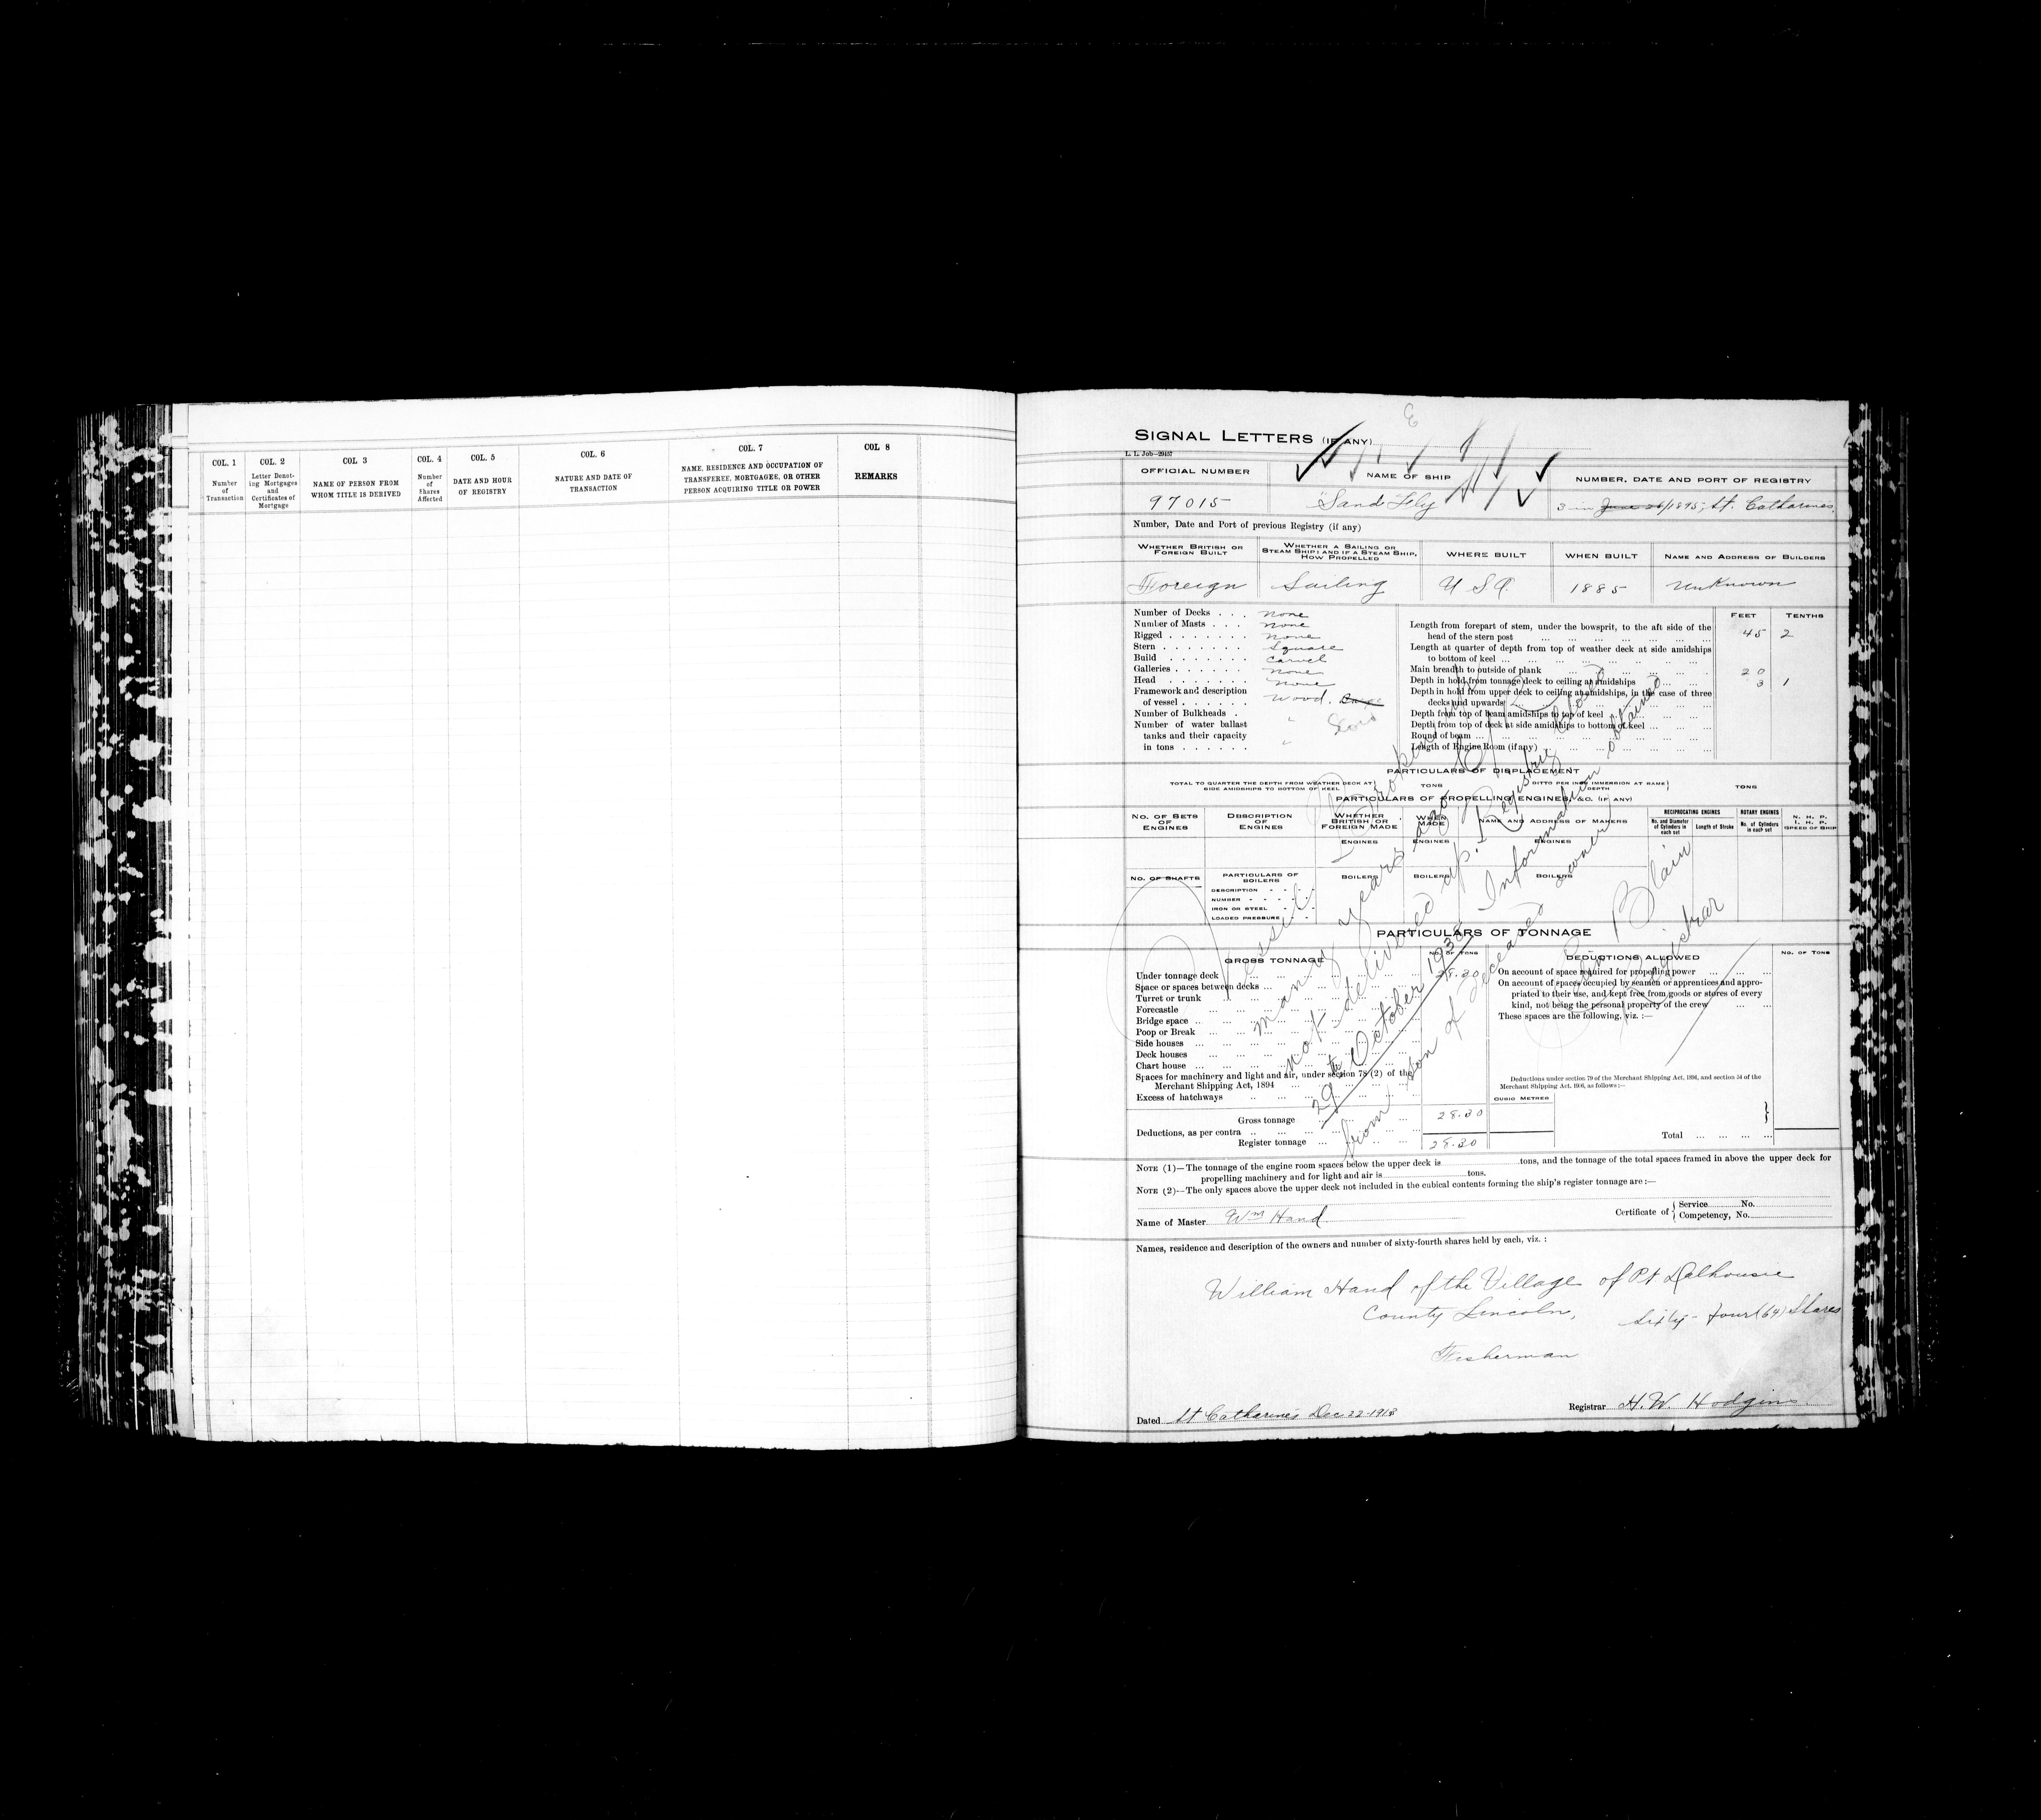 COL. 1
Number
of
Transaction
COL. 2
Letter Denot-
ing Mortgages
and
Certificates of
Mortgage
COL. 3
NAME OF PERSON FROM
WHOM TITLE IS DERIVED
COL. 4
Number
of
Shares
Affected
COL. 5
DATE AND HOUR
OF REGISTRY
COL. 6
NATURE AND DATE OF
TRANSACTION
COL. 7
NAME, RESIDENCE AND OCCUPATION OF
TRANSFEREE, MORTGAGEE, OR OTHER
PERSON ACQUIRING TITLE OR POWER
COL 8
REMARKS
SIGNAL LETTERS (IF ANY)
L. I. Job—29457
OFFICIAL NUMBER
NAME OF SHIP
NUMBER, DATE AND PORT OF REGISTRY
97015
"Sand Lily
3 in June 26/1895; St. Catharines.
Number, Date and Port of previous Registry (if any)
WHETHER BRITISH OR
FOREIGN BUILT
WHETHER A SAILING OR
STEAM SHIP; AND IF A STEAM SHIP,
HOW PROPELLED
WHERE BUILT
WHEN BUILT
NAME AND ADDRESS OF BUILDERS
Foreign
Sailing
U S A.
1885
Unknown
FEET TENTHS
Number of Decks . . . none
Number of Masts . . . none
Rigged . . . . . . . none
Stern . . . . . . . Square
Build . . . . . . . Carvel
Galleries . . . . . . none
Head . . . . . . . none
Framework and description
of vessel . . . . . . Wood. Barge
Scow
Number of Bulkheads . "
Number of water ballast
tanks and their capacity
in tons . . . . . . "
Length from forepart of stem, under the bowsprit, to the aft side of the
head of the stern post 45 2
Length at quarter of depth from top of weather deck at side amidships
to bottom of keel
Main breadth to outside of plank 20
Depth in hold from tonnage deck to ceiling at amidships 3 1
Depth in hold from upper deck to ceiling at amidships, in the case of three
decks and upwards
Depth from top of beam amidships to top of keel
Depth from top of deck at side amidships to bottom of keel
Round of beam
Length of Engine Room (if any)
PARTICULARS OF DISPLACEMENT
TOTAL TO QUARTER THE DEPTH FROM WEATHER DECK AT
SIDE AMIDSHIPS TO BOTTOM OF KEEL
TONS
DITTO PER INCH IMMERSION AT SAME
DEPTH
TONS
PARTICULARS OF PROPELLING ENGINES, &C. (IF ANY)
NO. OF SETS
OF
ENGINES
DESCRIPTION
OF
ENGINES
WHETHER
BRITISH OR
FOREIGN MADE
WHEN
MADE
NAME AND ADDRESS OF MAKERS
RECIPROCATING ENGINES
No. and Diameter
of Cylinders in
each set
Length of Stroke
ROTARY ENGINES
No. of Cylinders
in each set
N. H. P.
I. H. P.
SPEED OF SHIP
ENGINES
ENGINES
ENGINES
NO. OF SHAFTS
PARTICULARS OF
BOILERS
BOILERS
BOILERS
BOILERS
DESCRIPTION
NUMBER
IRON OR STEEL
LOADED PRESSURE
PARTICULARS OF TONNAGE
GROSS TONNAGE
NO. OF TONS
DEDUCTIONS ALLOWED
NO. OF TONS
Under tonnage deck 28.30
Space or spaces between decks
Turret or trunk
Forecastle
Bridge space
Poop or Break
Side houses
Deck houses
Chart house
Spaces for machinery and light and air, under section 78 (2) of the
Merchant Shipping Act, 1894
Excess of hatchways
Gross tonnage 28.30
Deductions, as per contra
Register tonnage 28.30
On account of space required for propelling power
On account of spaces occupied by seamen or apprentices and appro-
priated to their use, and kept free from goods or stores of every
kind, not being the personal property of the crew
These spaces are the following, viz. :—
Deductions under section 79 of the Merchant Shipping Act, 1894, and section 54 of the
Merchant Shipping Act, 1906, as follows:—
CUBIC METRES
Total
Vessel Broken up
many years ago
not delivered up. Registry Closed
29th October 193 Information obtained
from son of deceased owner
Blain
Registrar
NOTE (1)—The tonnage of the engine room spaces below the upper deck is tons, and the tonnage of the total spaces framed in above the upper deck for
propelling machinery and for light and air is tons.
NOTE (2)—The only spaces above the upper deck not included in the cubical contents forming the ship's register tonnage are :—
Name of Master Wm Hand
Certificate of { Service No.
Competency, No.
Names, residence and description of the owners and number of sixty-fourth shares held by each, viz. :
William Hand of the Village of Pt Dalhousie
County Lincoln, Sixty-four (64) Shares
Fisherman
Dated St Catharines Dec 22-1913
Registrar H. W. Hodgins